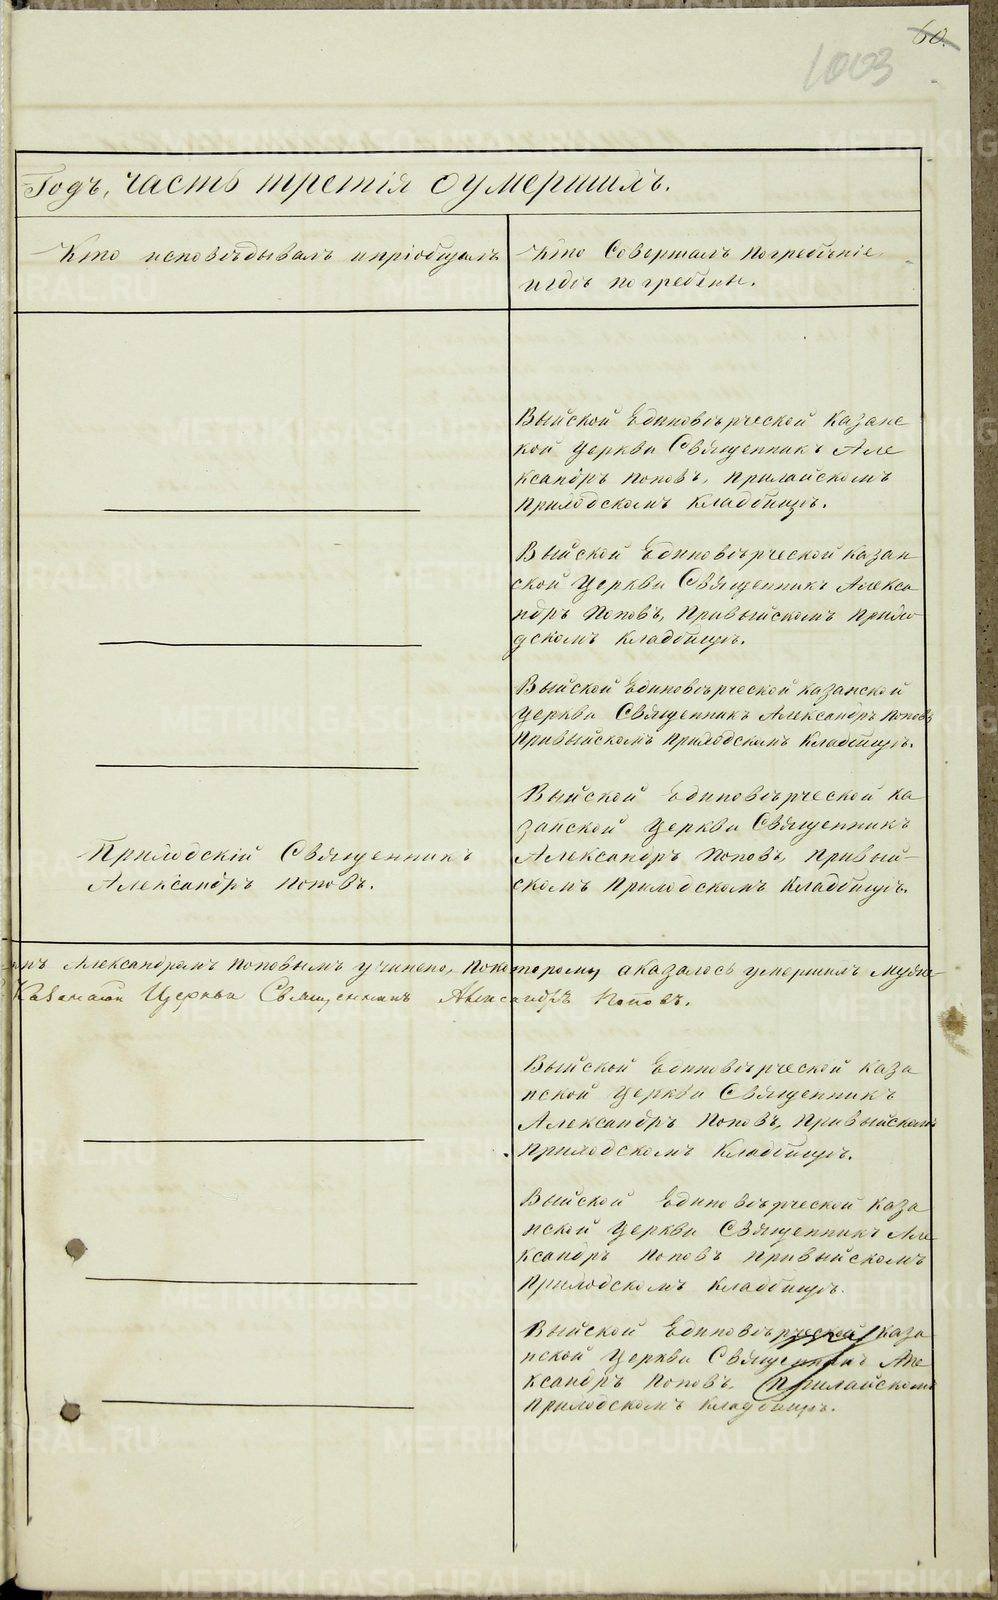 60.
1003
Годъ, часть третія о умершихъ.
Кто исповѣдывалъ и пріобщалъ
Кто Совершалъ погребѣніе
и гдѣ погребены.
Выйской Единовѣрческой Казанс
кой Церкви Священникъ Але
ксандръ Поповъ, Прилайскомъ
Приходскомъ Кладбищѣ.
Выйской Единовѣрческой Казан
ской Церкви Священникъ Алекса
ндръ Поповъ, Привыйскомъ Прихо
дскомъ Кладбищѣ.
Выйской Единовѣрческой Казанской
Церкви Священникъ Александръ Поповъ
Привыйскомъ Приходскомъ Кладбищѣ.
Приходскій Священникъ
Александръ Поповъ.
Выйской Единовѣрческой Ка
занской Церкви Священникъ
Александръ Поповъ, Привый-
скомъ Приходскомъ Кладбищѣ.
Александромъ Поповымъ учинено, Покоторому аказалось умершихъ Муже
Казанской Церкви Священникъ Александръ Поповъ.
Выйской Единовѣрческой Каза
нской Церкви Священникъ
Александръ Поповъ, Привыйскомъ
Приходскомъ Кладбищѣ.
Выйской Единовѣрческой Каза
нской Церкви Священникъ Але
ксандръ Поповъ Привыйскомъ
Приходскомъ Кладбищѣ.
Выйской Единовѣрческой Каза
нской Церкви Священникъ Але
ксандръ Поповъ, Прилайскомъ
Приходскомъ Кладбищѣ.
METRIKI.GASO-URAL.RU